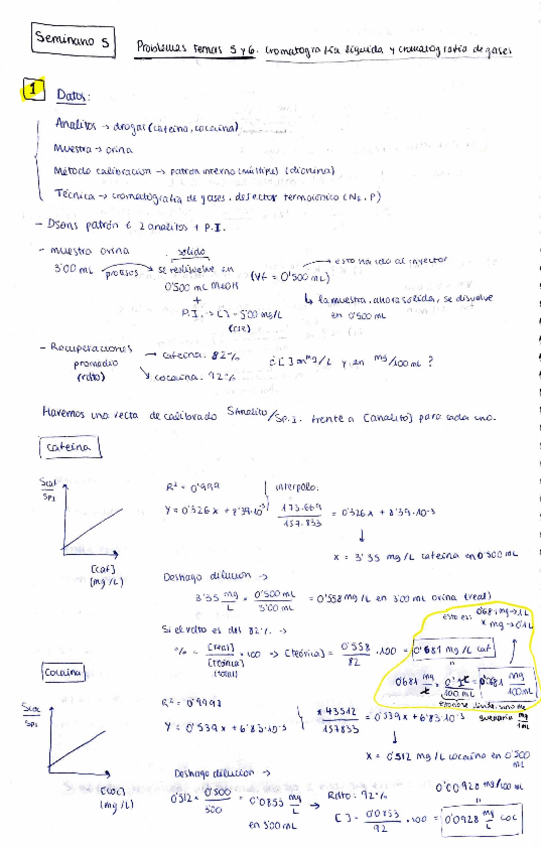 Seminario 5
Problemas temas 5 y 6. Cromatografía líquida y cromatografía de gases
1 Datos:
Analitos → drogas (cafeína, cocaína)
Muestra → orina
Método calibración → patrón interno (múltiple) (dionina)
Técnica → cromatografía de gases. detector termoiónico (N2, P)
- Dsons patrón c 2 analitos + P.I.
- muestra orina
3'00 mL
proceso
sólido
se redisuelve en
0'500 mL MeOH
+
P.I. → [ ] = 5'00 mg/L
(cte)
(Vf = 0'500 mL)
esto ha ido al inyector
↳ la muestra, ahora sólida, se disuelve
en 0'500 mL
- Recuperaciones
promedio
(rdto)
→ cafeína. 82%
↘ cocaína. 92%
¿[ ] en mg/L y en mg/100mL?
Haremos una recta de calibrado Sanalito/SP.I. frente a [analito] para cada uno.
Cafeína
Scaf
SPI
[caf]
(mg/L)
R² = 0'999
Y = 0'326 x + 8'39·10⁻³
interpolo:
173.669
157.833
= 0'326 x + 8'39·10⁻³
↓
x = 3'35 mg/L cafeína en 0'500 mL
Deshago dilución →
3'35 mg/L · 0'500 mL / 3'00 mL = 0'558 mg/L en 3'00 mL orina (real)
Si el rdto es del 82% →
% = [real] / [teórica] (total) · 100 → [teórica] = 0'558 / 82 · 100 = 0'681 mg/L caf
esto es: 0'681 mg → 1L
x mg → 0'1L
0'681 mg/L · 0'1L / 100 mL = 0'0681 mg/100mL
mg/1mL
Cocaína
Scoc
SPI
[coc]
(mg/L)
R² = 0'9998
Y = 0'539 x + 6'83·10⁻³
43512
157833
= 0'539 x + 6'83·10⁻³
↓
x = 0'512 mg/L cocaína en 0'500
mL
Deshago dilución →
0'512 · 0'500 / 3'00 = 0'0853 mg/L
en 3'00 mL
→ Rdto: 92%
[ ] = 0'0853 / 92 · 100 = 0'0928 mg/L coc
0'00928 mg/100 mL